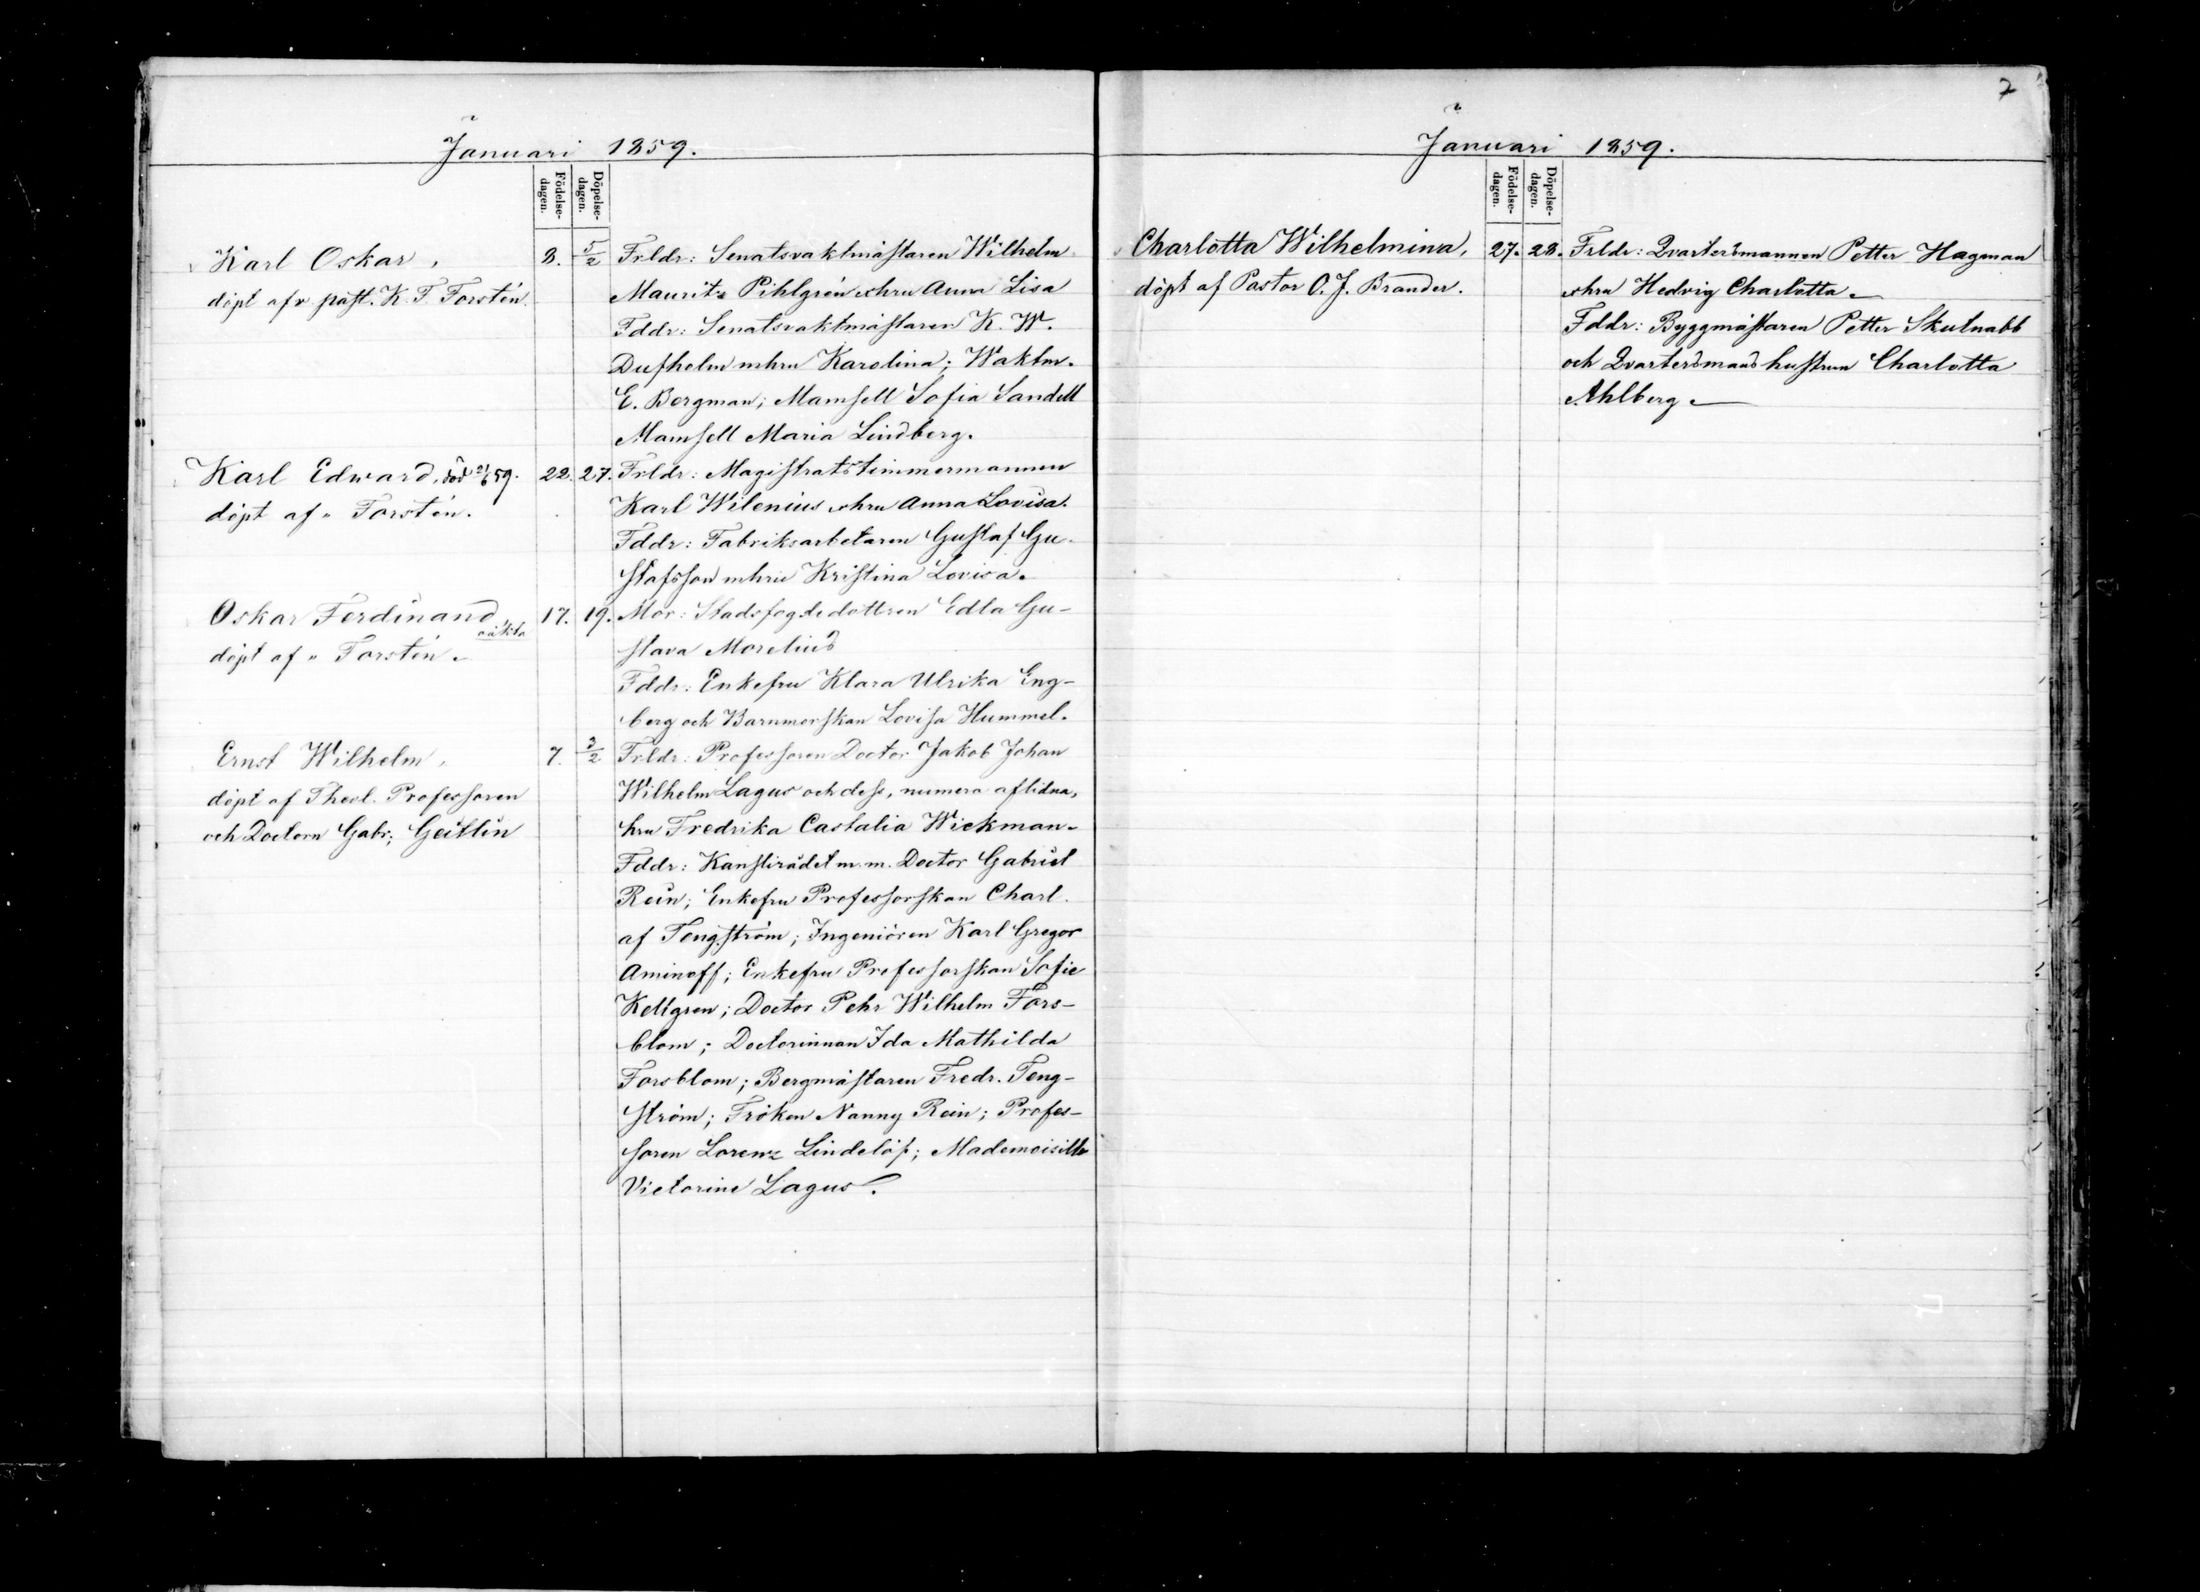 Januari 1859.
Födelse-dagen.
Döpelse-dagen.
Karl Oskar,
döpt af v. past. K. F. Forstén.
8. 5/2
Frldr: Senatsvaktmästaren Wilhelm
Mauritz Pihlgrén o hru Anna Lisa
Fddr: Senatsvaktmästaren K. W.
Dufholm m hru Karolina; Waktm.
E. Bergman; Mamsell Sofia Sandell
Mamsell Maria Lindberg.
Karl Edward, död 21/6 59.
döpt af " Forstén.
22. 27.
Frldr: Magistratstimmermannen
Karl Wilenius o hru Anna Lovisa.
Fddr: Fabriksarbetaren Gustaf Gu-
stafsson m hru Kristina Lovisa.
Oskar Ferdinand
oäkta
döpt af " Forstén.
17. 19.
Mor: Stadsfogdedottren Edla Gu-
stava Morelius
Fddr: Enkefru Klara Ulrika Eng-
berg och Barnmorskan Lovisa Hummel.
Ernst Wilhelm,
döpt af Theol. Professoren
och Doctorn Gabr; Geitlin
7. 3/2
Frldr: Professoren Doctor Jakob Johan
Wilhelm Lagus och dess, numera aflidna,
hru Fredrika Castalia Wickman.
Fddr: Kanslirådet m. m. Doctor Gabriel
Rein; Enkefru Professorskan Charl.
af Tengström; Ingeniören Karl Gregor
Aminoff; Enkefru Professorskan Sofie
Kellgren; Doctor Pehr Wilhelm Fors-
blom; Doctorinnan Ida Mathilda
Forsblom; Bergmästaren Fredr. Teng-
ström; Fröken Nanny Rein; Profes-
soren Lorenz Lindelöf; Mademoiselle
Victorine Lagus.
7
Januari 1859.
Födelse-dagen.
Döpelse-dagen.
Charlotta Wilhelmina,
döpt af Pastor O. J. Brander.
27. 28.
Frldr: Qvartersmannen Petter Hagman
o hru Hedvig Charlotta.
Fddr: Byggmästaren Petter Skutnabb
och Qvartersmans hustrun Charlotta
Ahlberg.